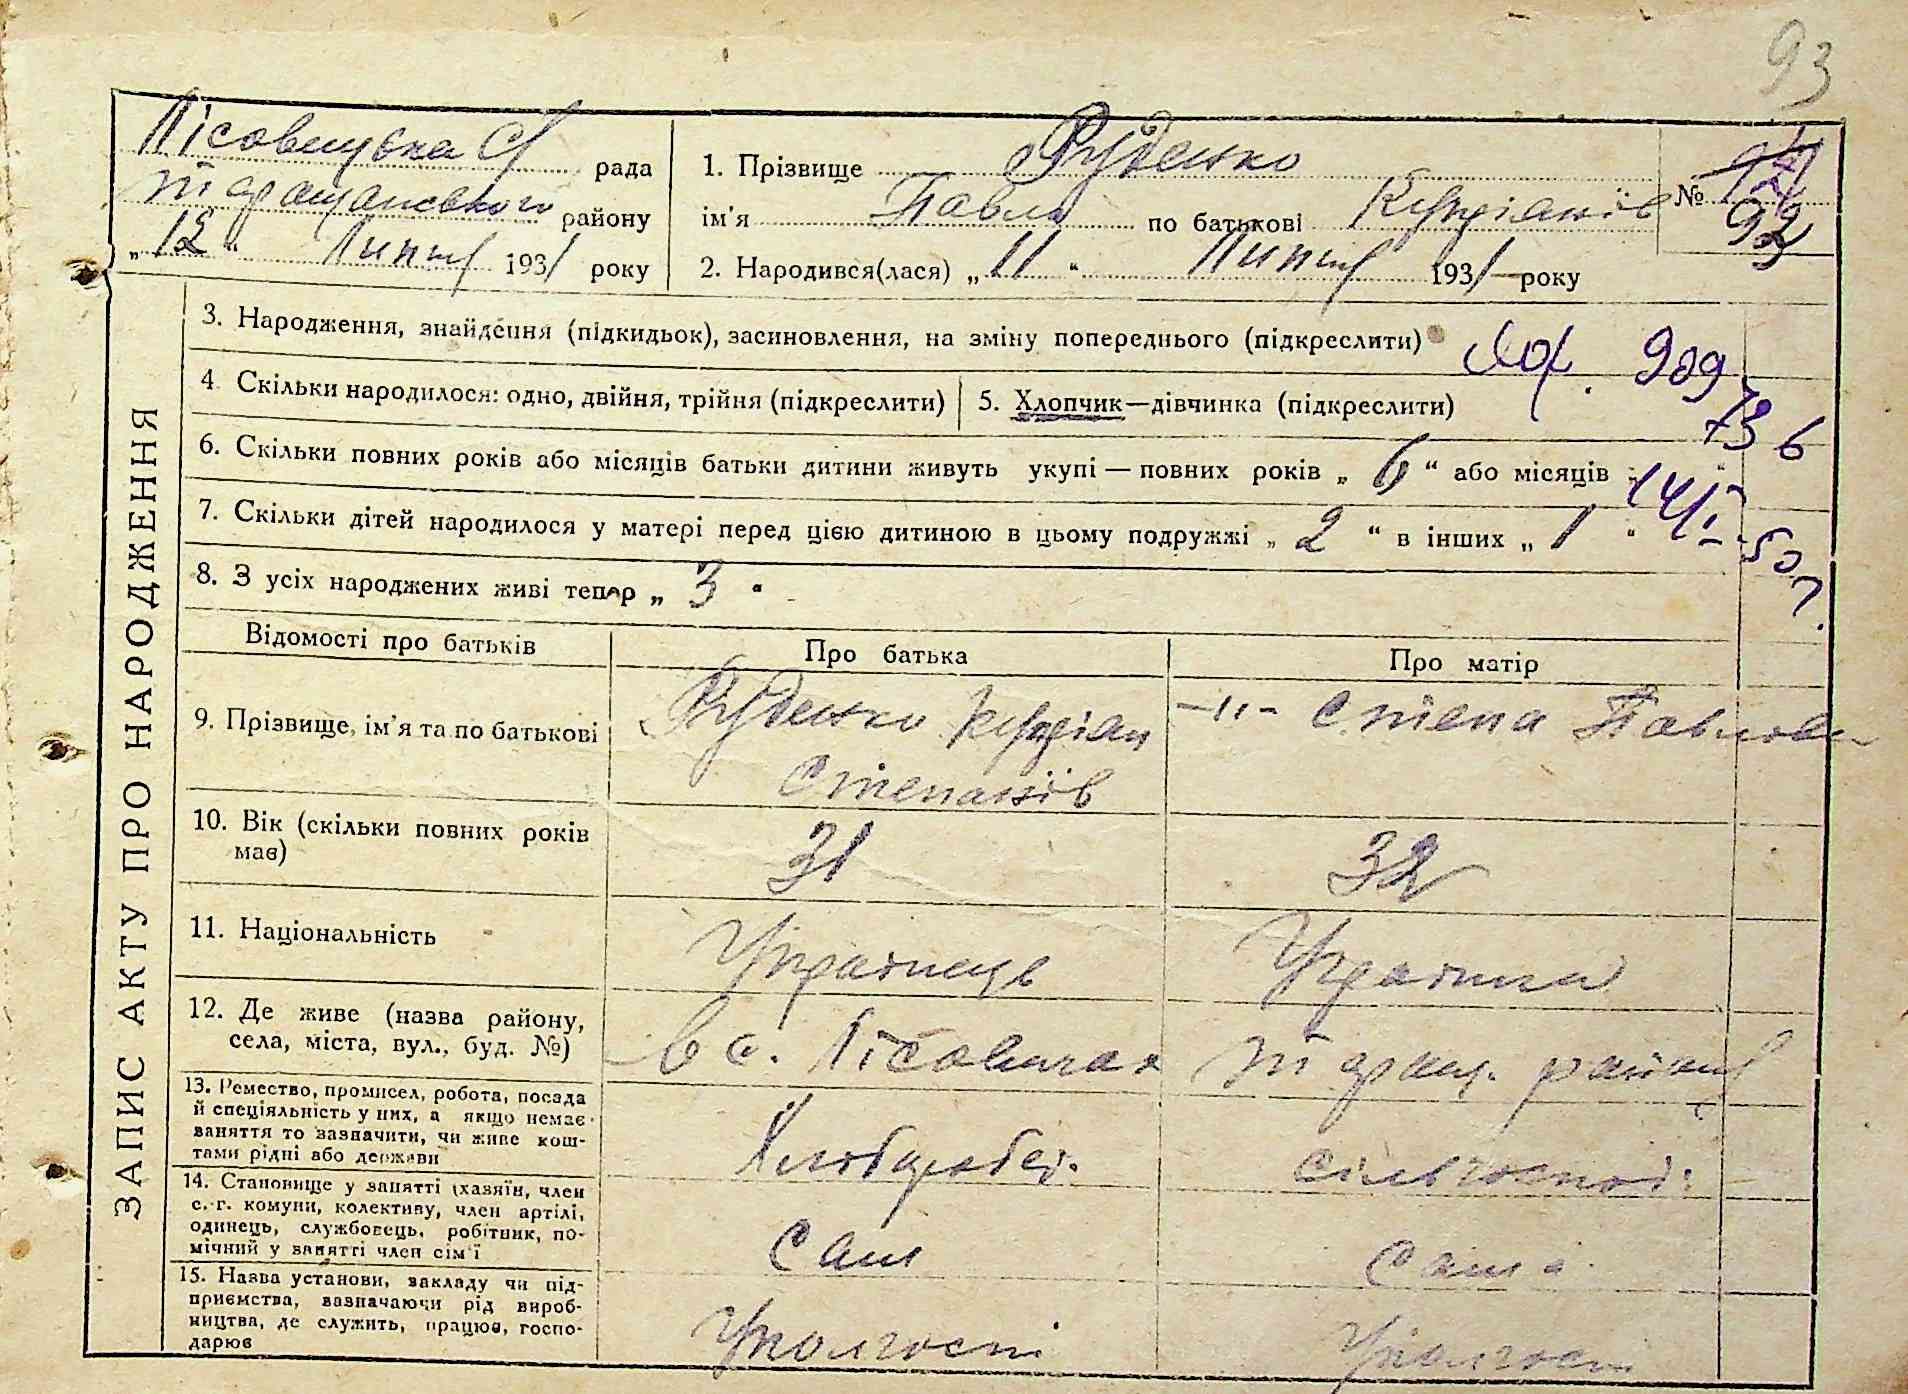 93
Лісовицька С/ рада
Таращанського району
„ 12 “ Липня 1931 року
1. Прізвище Руденко
ім’я Павло по батькові Купріянів
2. Народився(лася) „ 11 “ Липня 1931 року
№ 92
ЗАПИС АКТУ ПРО НАРОДЖЕННЯ
3. Народження, знайдення (підкидьок), засиновлення, на зміну попереднього (підкреслити)
909
73 6
14/I 50 г.
4. Скільки народилося: одно, двійня, трійня (підкреслити)
5. Хлопчик—дівчинка (підкреслити)
6. Скільки повних років або місяців батьки дитини живуть укупі — повних років „ 6 “ або місяців „
7. Скільки дітей народилося у матері перед цією дитиною в цьому подружжі „ 2 “ в інших „ 1 “
8. З усіх народжених живі тепер „ 3 “
Відомості про батьків
Про батька
Про матір
9. Прізвище, ім’я та по батькові
Руденко Купріян
Степанів
-״- Степа Павлова
10. Вік (скільки повних років
має)
31
32
11. Національність
Українець
Українка
12. Де живе (назва району,
села, міста, вул., буд. №)
в с. Лісовичах
Таращ. району
13. Ремество, промисел, робота, посада
й спеціяльність у них, а якщо немає
заняття то зазначити, чи живе кош-
тами рідні або держави
Хлібороб
сільгоспод.
14. Становище у занятті (хазяїн, член
с.-г. комуни, колективу, член артілі,
одинець, службовець, робітник, по-
мічний у занятті член сім’ї
Сам
Сама
15. Назва установи, закладу чи під-
приємства, зазначаючи рід вироб-
ництва, де служить, працює, госпо-
дарює
У колгоспі
У колгоспі